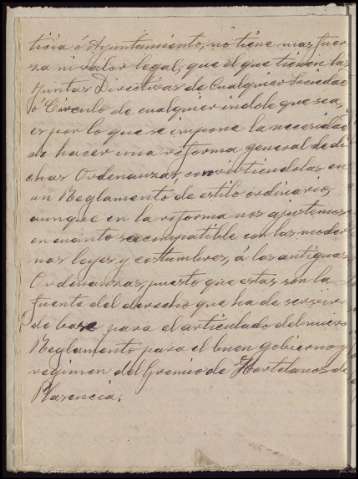 ticia ó Ayuntamiento, no tiene mas fuer
za ni valor legal, que el que tienen las
Juntas Directivas de cualquier Sociedad
ó Círculo de cualquier indole que sea,
es por lo que se impone la necesidad
de hacer una reforma general de di
chas Ordenanzas, convirtiéndolas en
un Reglamento de estilo ordinario,
aunque en la reforma nos ajustemos
en cuanto sea compatible con las moder
nas leyes y costumbres, á las antiguas
Ordenanzas, puesto que estas son la
fuente del derecho que ha de servir
de base para el articulado del nuevo
Reglamento para el buen gobierno y
régimen del Gremio de Hortelanos de
Plasencia.